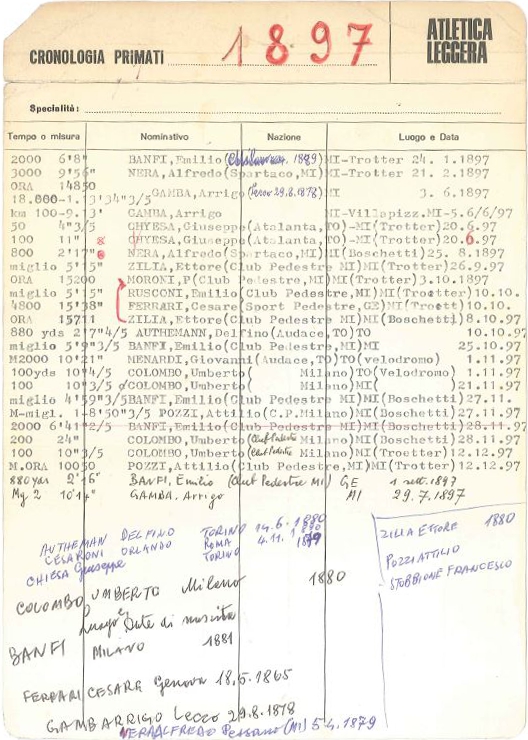 CRONOLOGIA PRIMATI 1897
ATLETICA
LEGGERA
Specialità:
Tempo o misura Nominativo Nazione Luogo e Data
2000 6'8" BANFI, Emilio ( 1889) MI-Trotter 24. 1.1897
3000 9'56" NERA, Alfredo(Spartaco,MI)MI-Trotter 21. 2.1897
ORA 14850
18.000-1. 3'34"3/5 GAMBA, Arrigo (Lecco 29.8.1878) MI 3. 6.1897
km 100-9. 3' GAMBA, Arrigo MI-Villapizz.MI-5.6/6/97
50 4"3/5 CHYESA, Giuseppe(Atalanta,TO)-MI(Trotter)20.6.97
100 11" CHYESA, Giuseppe(Atalanta,TO)-MI(Trotter) 20.6.97
800 2'17" NERA, Alfredo(Spartaco,MI)MI(Boschetti) 25. 8.1897
miglio 5'15" ZILIA, Ettore(Club Pedestre,MI)MI(Trotter)26.9.1897
ORA 15200 MORONI,P(Club Pedestre,MI)MI(Trotter)3.10.1897
miglio 5'15" RUSCONI, Emilio(Club Pedestre,MI)MI(Trotter)10.10.
4800 15'38" FERRARI, Cesare(Sport Pedestre,GE)MI(Trott)10.10.
ORA 15711 ZILIA, Ettore(Club Pedestre MI)MI(Boschetti)8.10.97
880 yds 2'7"4/5 AUTHEMANN, Delfino(Audace,TO)TO 10.10.97
miglio 5'9"3/5 BANFI, Emilio(Club Pedestre,MI)MI 25.10.97
M2000 10'21" MENARDI, Giovanni(Audace,TO)TO(velodromo) 1.11.97
100yds 10"4/5 COLOMBO, Umberto( Milano)TO(Velodromo) 1.11.97
100 10"3/5 COLOMBO, Umberto( Milano)MI( )21.11.97
miglio 4'59"3/5BANFI, Emilio(Club Pedestre,MI)MI(Boschetti)27.11.
M-migl. 1-8'50"3/5 POZZI, Attilio(C.P.Milano)MI(Boschetti)27.11.97
2000 6'41"2/5 BANFI, Emilio(Club Pedestre,MI)MI(Boschetti)28.11.97
200 24" COLOMBO, Umberto(Club Pedestre Milano)MI(Boschetti)28.11.97
100 10"3/5 COLOMBO, Umberto(Club Pedestre Milano)MI(Trotter)12.12.97
M.ORA 10050 POZZI, Attilio(Club Pedestre, MI)MI(Trotter)12.12.97
880yds 2'16" BANFI, Emilio (Club Pedestre MI) GE 1 sett. 1897
Mg 2 10'14" GAMBA, Arrigo MI 29.7.1897
AUTHEMAN DELFINO TORINO 14.6.1880
CESARONI ORLANDO ROMA 4.11.1880
CHIESA Giuseppe TORINO 1879
COLOMBO UMBERTO Milano 1880
Luogo e Date di nascita
BANFI MILANO 1881
FERRARI CESARE Genova 18.5.1865
GAMBA ARRIGO Lecco 29.8.1878
NERA ALFREDO Pessano (MI) 5.4.1879
ZILIA ETTORE 1880
POZZI ATTILIO
STOBBIONE FRANCESCO